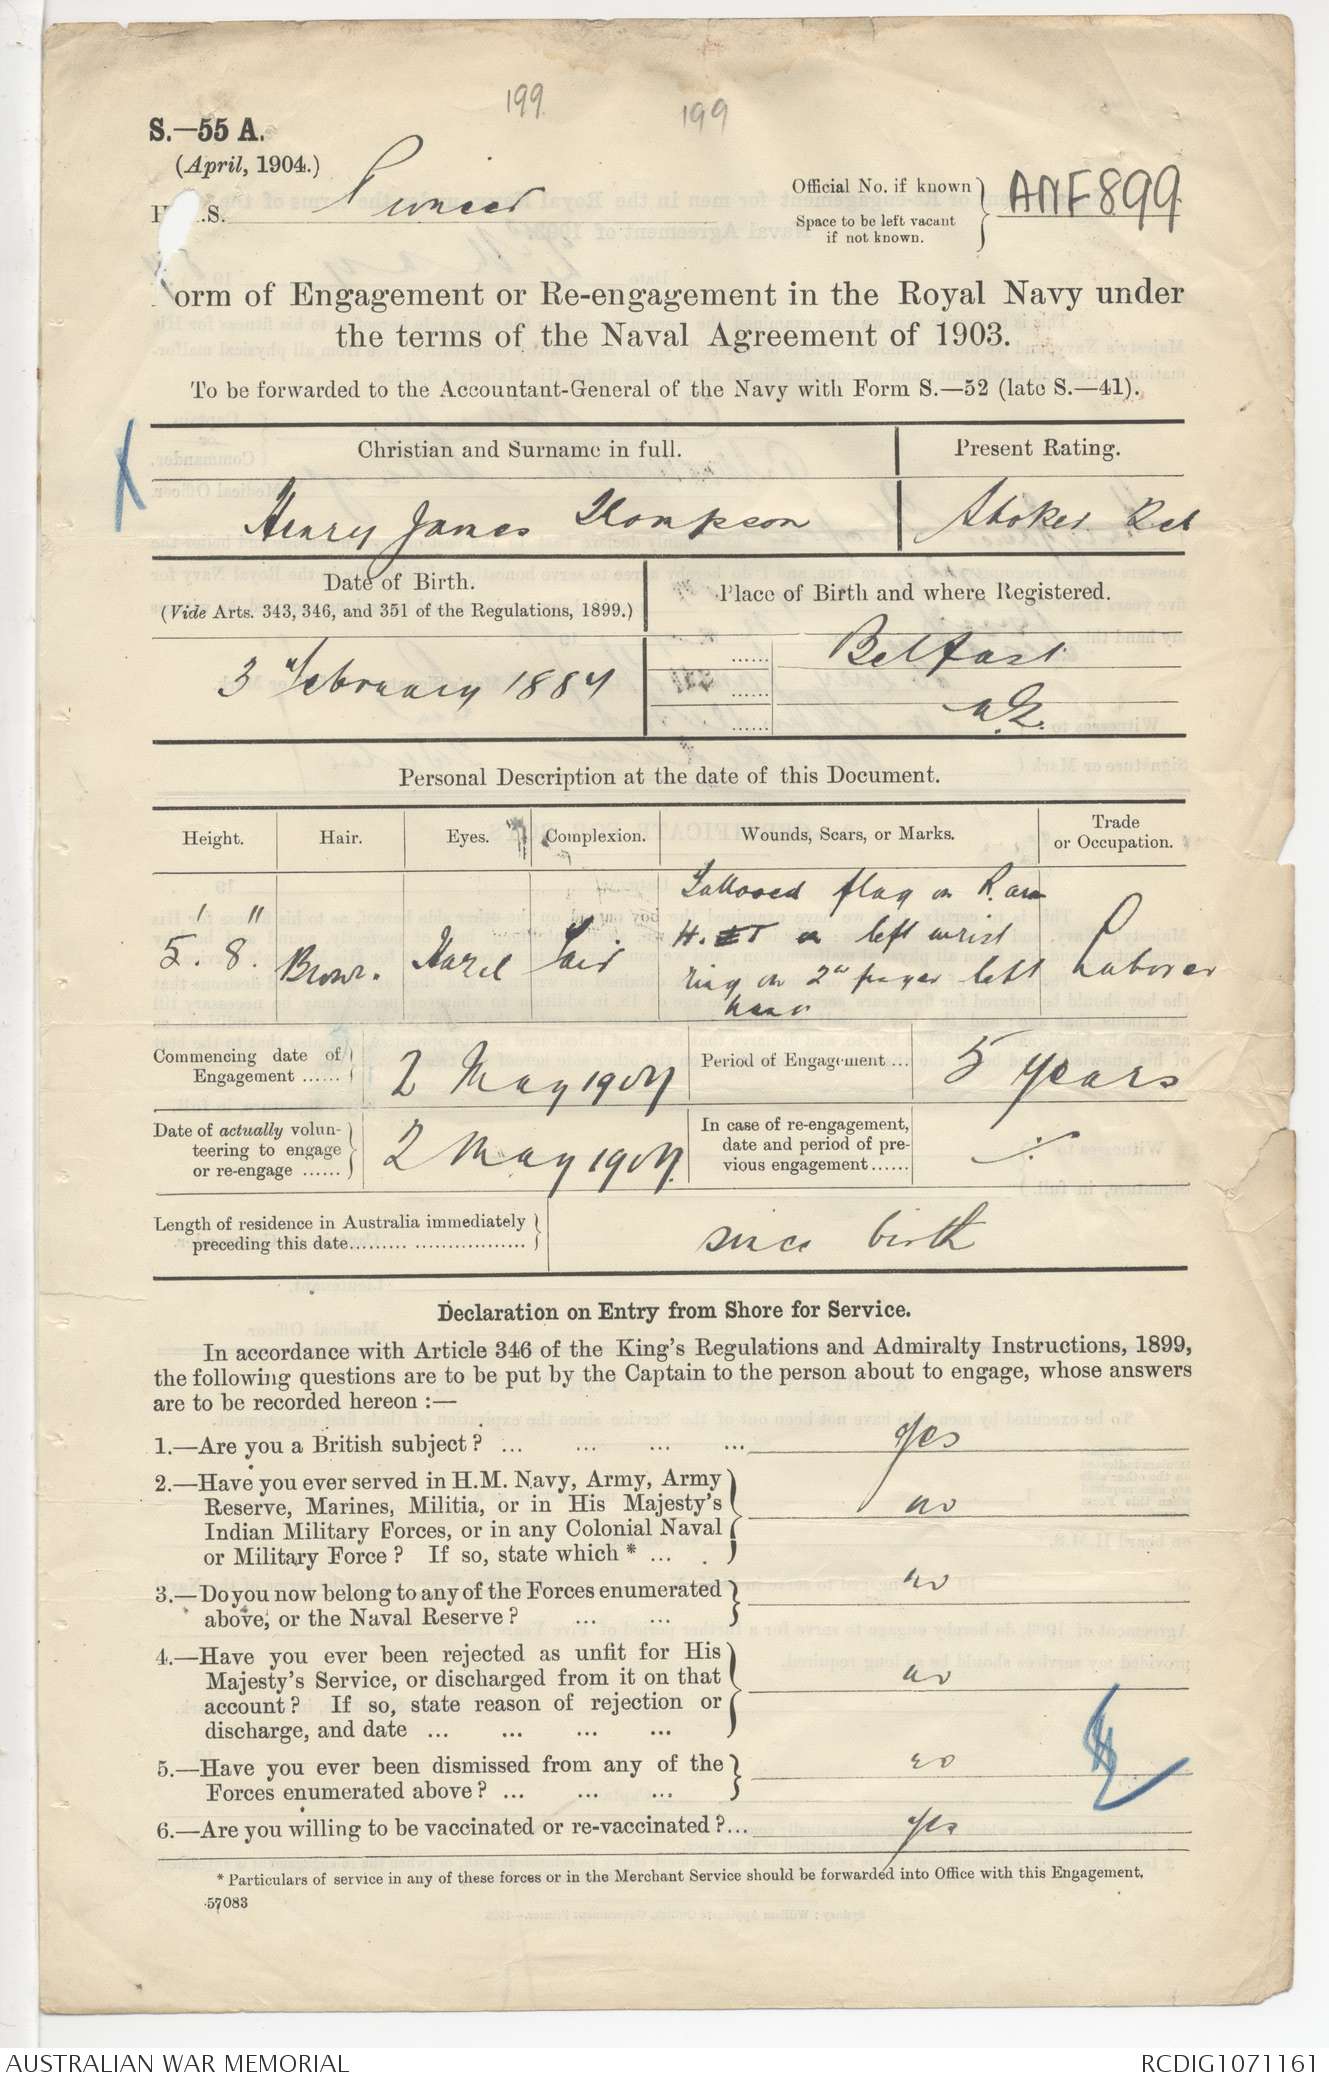 199 199
S.—55 A.
(April, 1904.)
H.S. Pioneer
Official No. if known
Space to be left vacant
if not known.
ANF899
orm of Engagement or Re-engagement in the Royal Navy under
the terms of the Naval Agreement of 1903.
To be forwarded to the Accountant-General of the Navy with Form S.—52 (late S.—41).
X
Christian and Surname in full. Present Rating.
Henry James Thompson Stoker 2cl
Date of Birth.
(Vide Arts. 343, 346, and 351 of the Regulations, 1899.)
Place of Birth and where Registered.
3 February 1884
Belfast
Personal Description at the date of this Document.
Height. Hair. Eyes. Complexion. Wounds, Scars, or Marks. Trade
or Occupation.
5' 8" Brown. Hazel Fair
Tattooed flag on R. arm
H. T on left wrist
ring on 2nd finger left
hand
Laborer
Commencing date of
Engagement ......
2 May 1904
Period of Engagement ...
5 years
Date of actually volun-
teering to engage
or re-engage ......
2 May 1904
In case of re-engagement,
date and period of pre-
vious engagement......
Length of residence in Australia immediately
preceding this date......... ..................
since birth
Declaration on Entry from Shore for Service.
In accordance with Article 346 of the King's Regulations and Admiralty Instructions, 1899,
the following questions are to be put by the Captain to the person about to engage, whose answers
are to be recorded hereon :—
1.—Are you a British subject? ... ... ... ... Yes
2.—Have you ever served in H.M. Navy, Army, Army
Reserve, Marines, Militia, or in His Majesty's
Indian Military Forces, or in any Colonial Naval
or Military Force? If so, state which * ...
no
3.—Do you now belong to any of the Forces enumerated
above, or the Naval Reserve? ... ...
no
4.—Have you ever been rejected as unfit for His
Majesty's Service, or discharged from it on that
account? If so, state reason of rejection or
discharge, and date ... ... ... ...
no
5.—Have you ever been dismissed from any of the
Forces enumerated above? ... ... ...
no
6.—Are you willing to be vaccinated or re-vaccinated?... yes
* Particulars of service in any of these forces or in the Merchant Service should be forwarded into Office with this Engagement.
57083
AUSTRALIAN WAR MEMORIAL RCDIG1071161